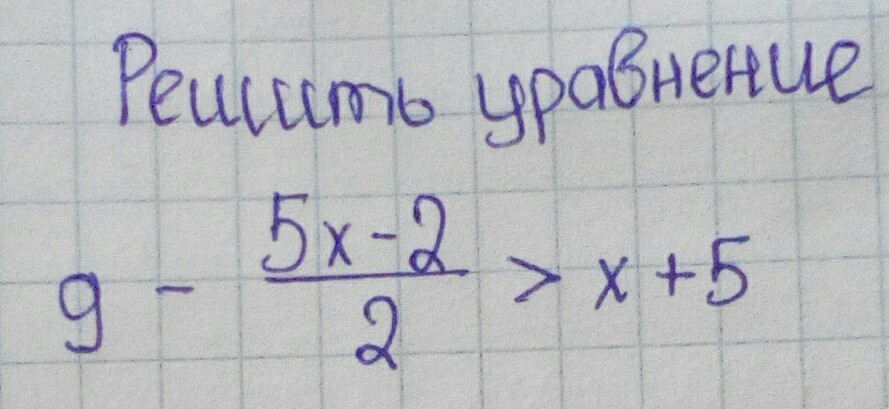 Решить уравнение
9 - \frac{5x-2}{2} > x+5